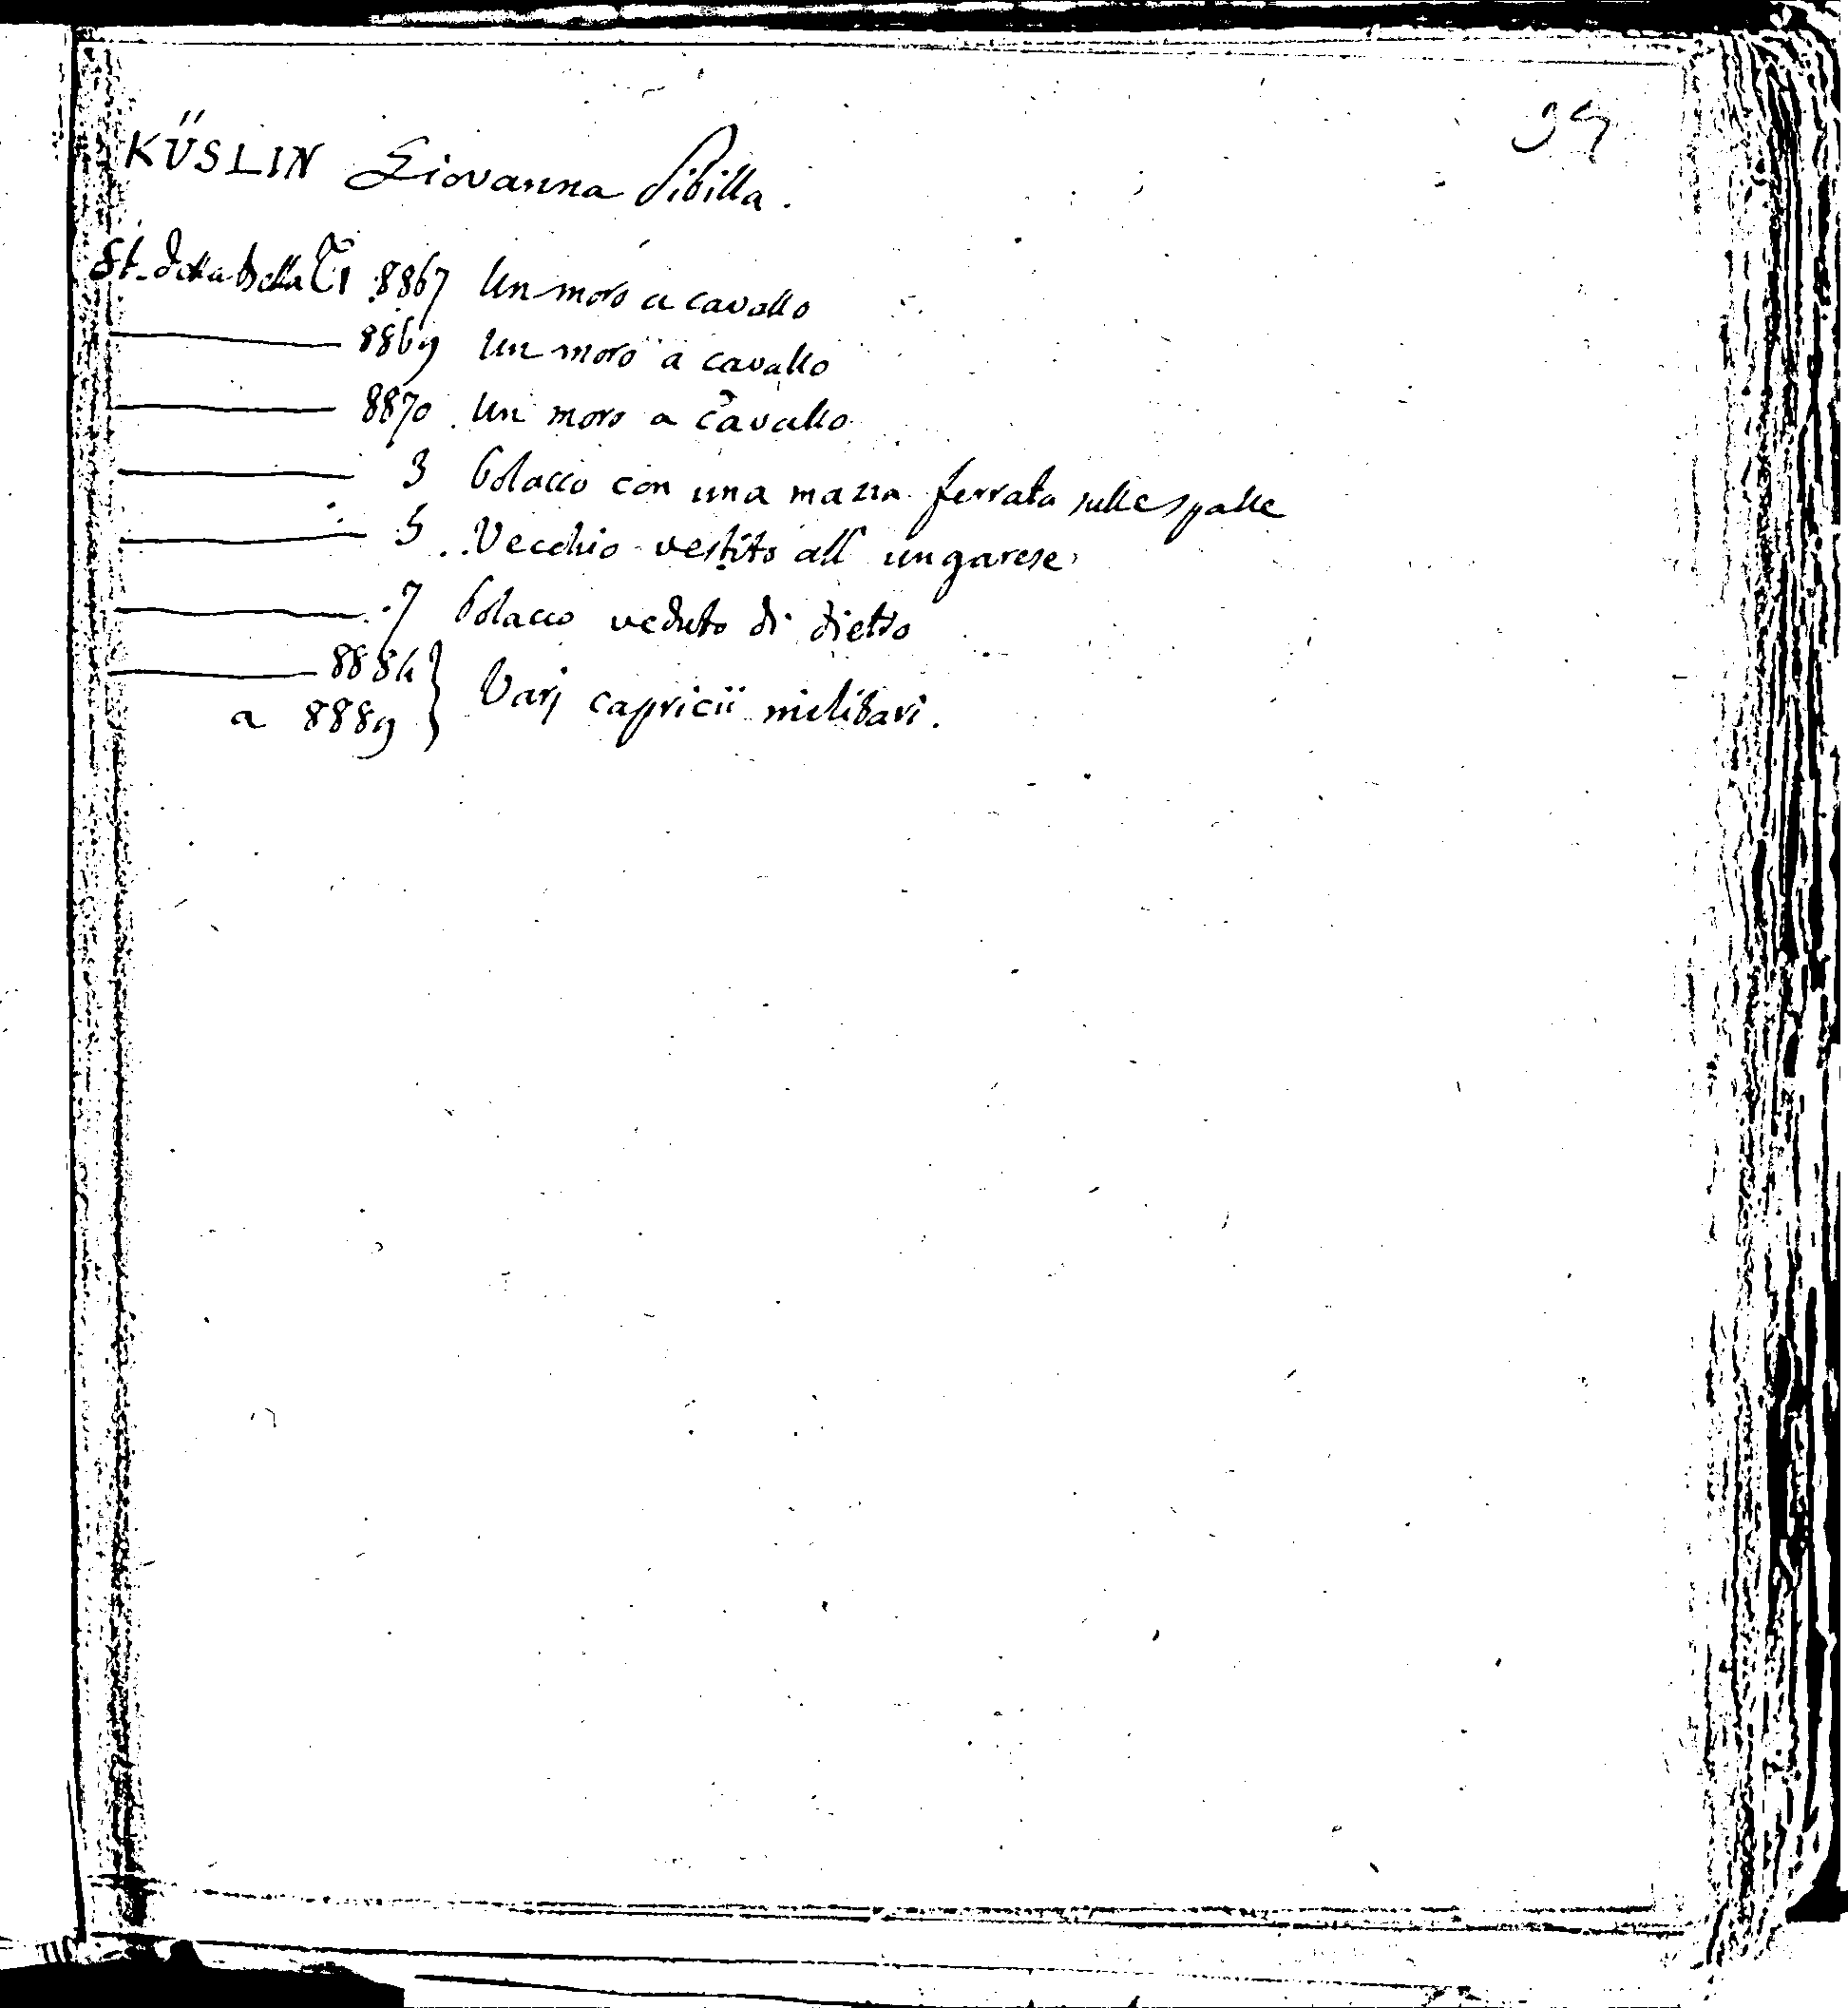 94
KÜSLIN Giovanna Sibilla.
St. della Bella 8867 Un moro a cavallo
8869 Un moro a cavallo
8870 Un moro a cavallo
3 Polacco con una mazza ferrata sulle spalle
5 Vecchio vestito all' ungarese
7 Polacco veduto di dietro
8884
a 8889 } Varj capricii militari.